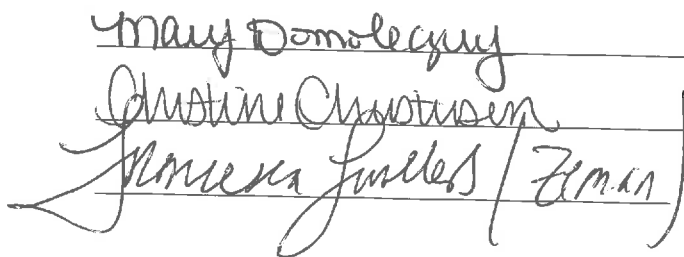 Mary Domolecquy
Christine Christensen
Francesca (Zeman)